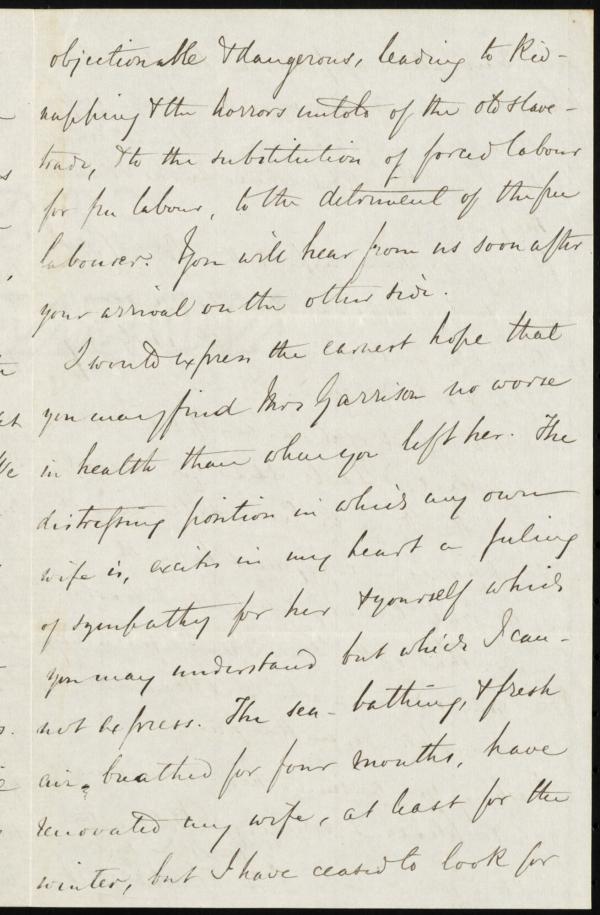 objectionable & dangerous, leading to kid-
napping & the horrors untold of the old slave-
trade, & to the substitution of forced labour
for free labour, to the detriment of the free
labourer. You will hear from us soon after
your arrival on the other side.
I would express the earnest hope that
you may find Mrs Garrison no worse
in health than when you left her. The
distressing position in which my own
wife is, excites in my heart a feeling
of sympathy for her & yourself which
you may understand but which I can-
not express. The sea-bathing, & fresh
air, breathed for four months, have
renovated my wife, at least for the
winter, but I have ceased to look for